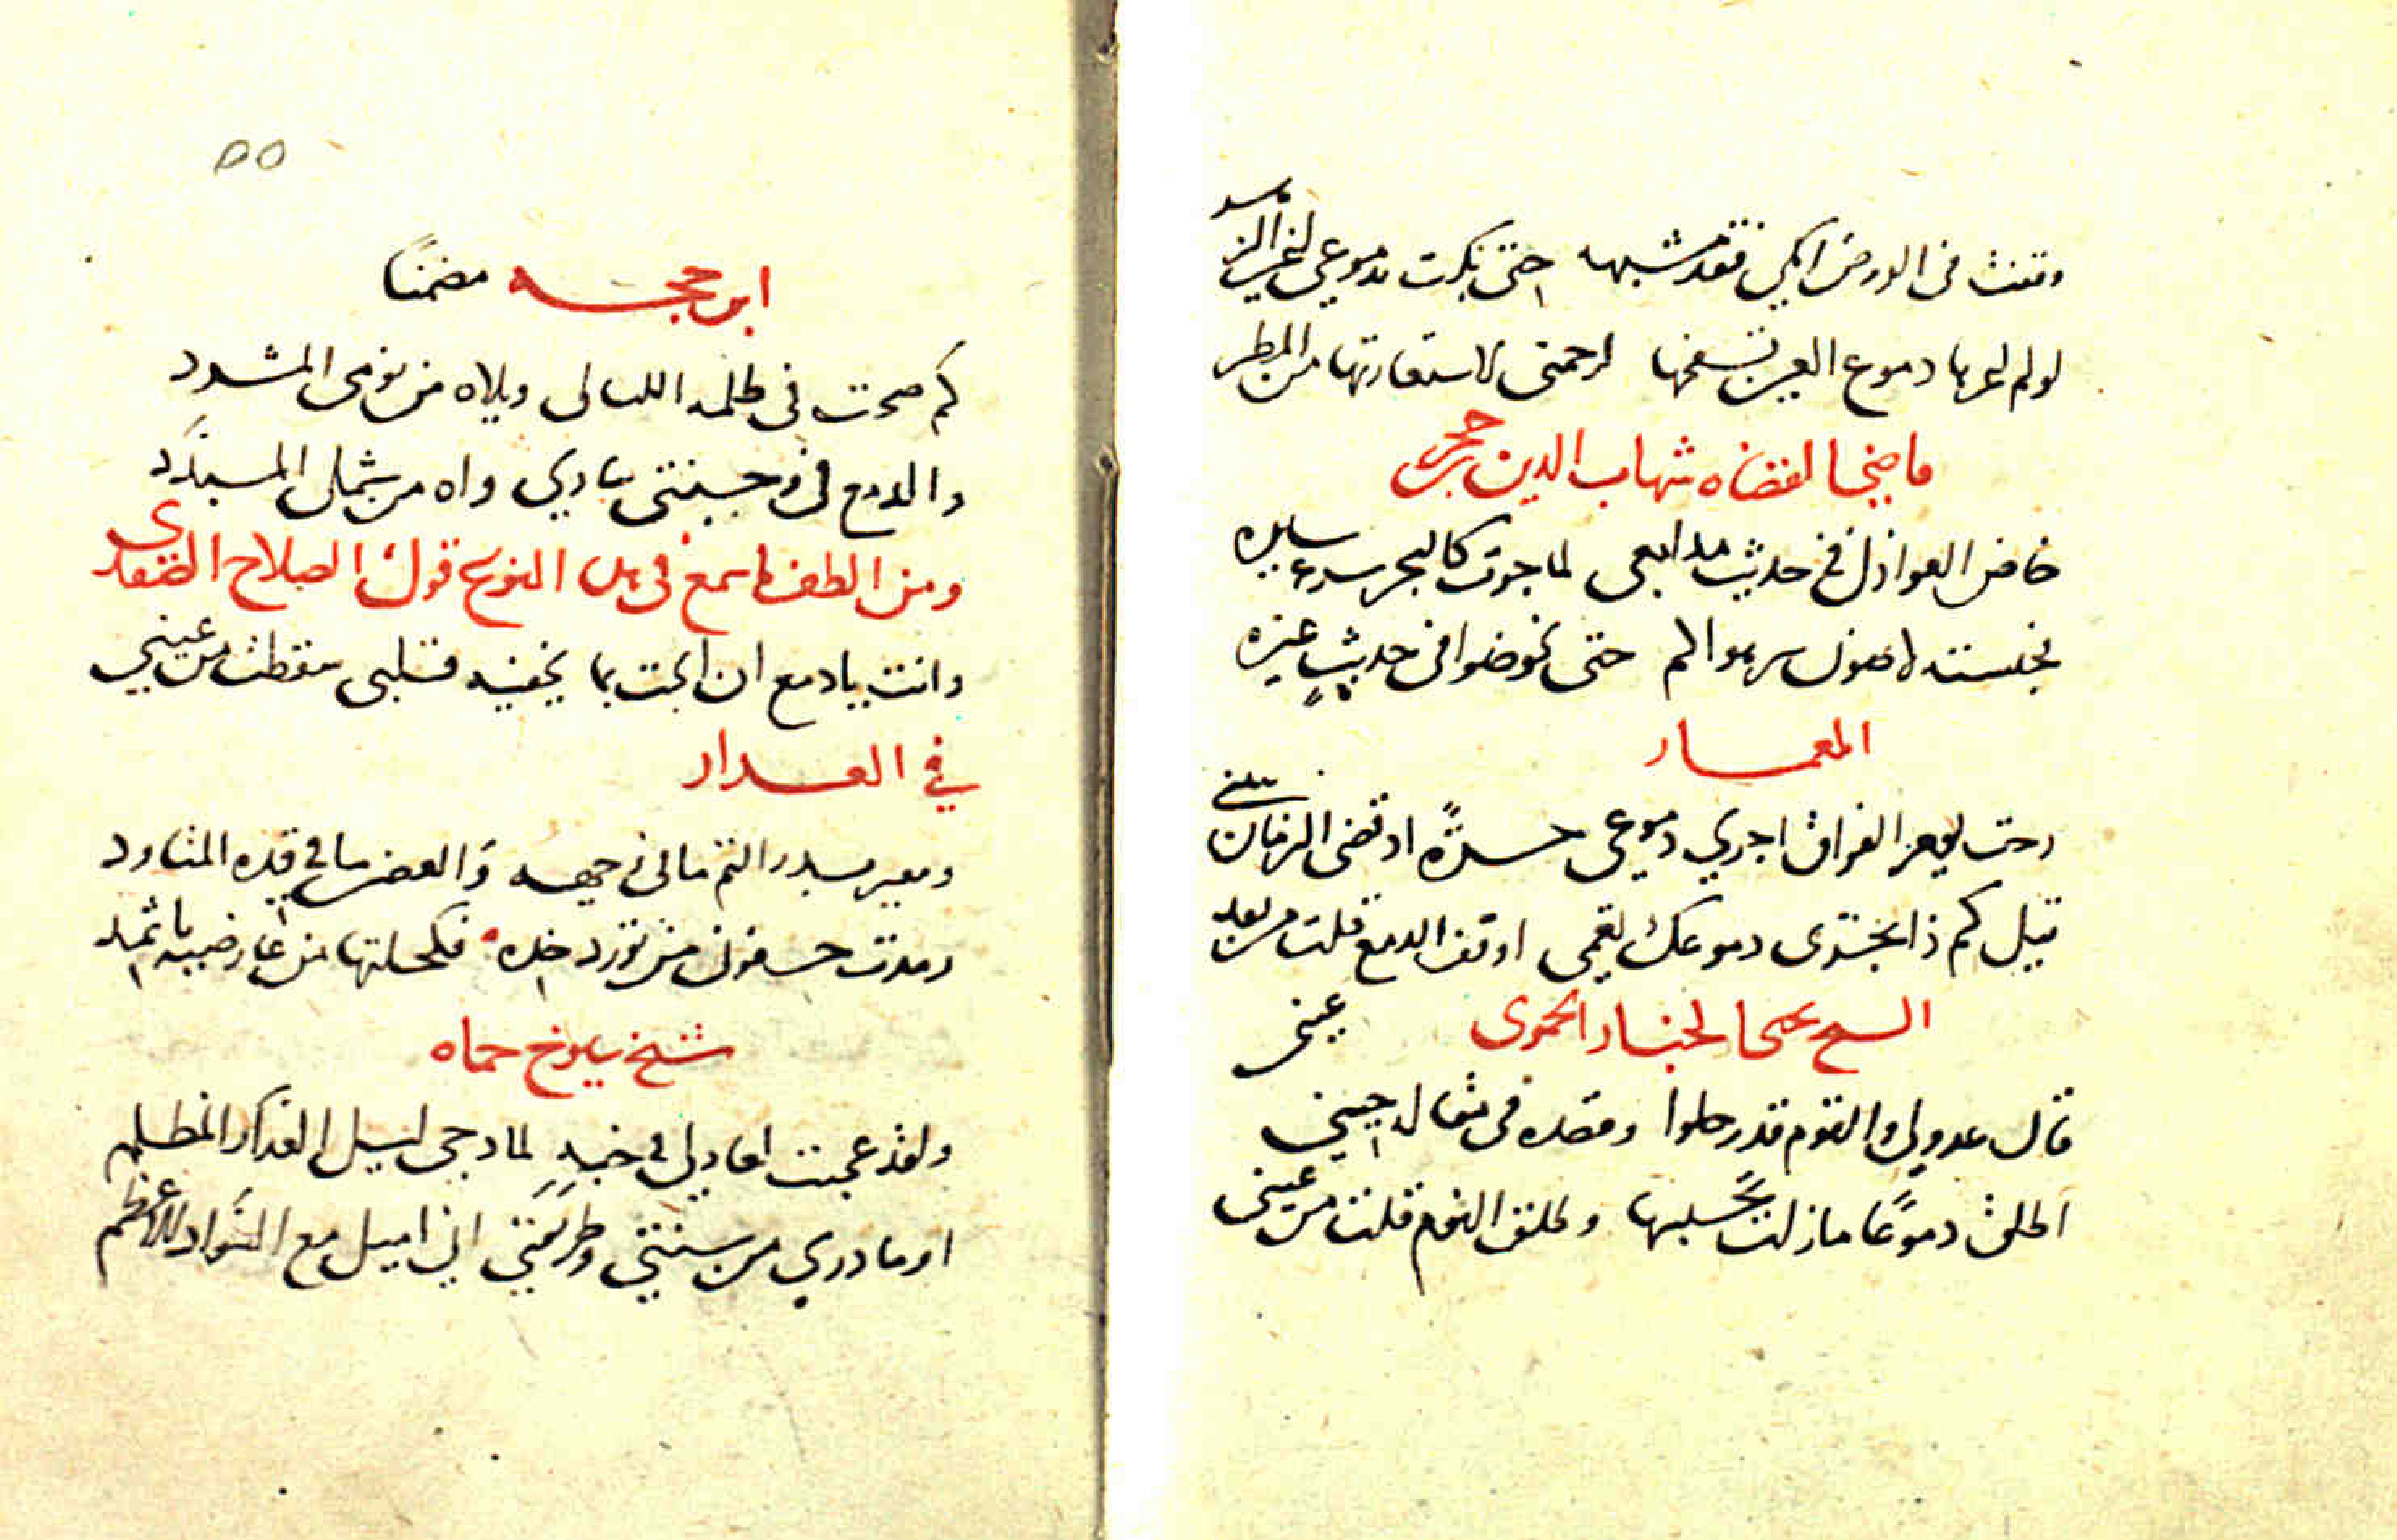 وقفت في الروض ابكي فقد مشبهه حتى بكت بدموعي اعين الزهر
لو لم اعرها دموع العين تسفحها لرحمتي لاستعارتها من المطر
قاضي القضاه شهاب الدين بن حجر
خاض العواذل في حديث مدامعي لما جرت كالبحر سرعه سيره
فحبسته لاصون سر هواكم حتى يخوضوا في حديث غيره
المعمار
رحت يوم الفراق اجري دموعي حسرةً اذ قضى الزمان ببيني
قيل كم ذا تجري دموعك تعمى اوقف الدمع قلت من بعد عيني
الشيخ يحيى الخباز الحموي
قال عدولي والقوم قد رحلوا وقصده في مقاله حيني
اطلق دموعًا ما زلت تحبسها وطلق النوم قلت من عيني
٥٥
ابن حجه مضمنًا
كم صحت في ظلمه الليالي ويلاه من نومي المشرد
والدمع في وجنتي ينادي واه من شملي المبدد
ومن الطف ما سمع في هذا النوع قول الصلاح الصفدي
وانت يا دمع ان ابحت بما يخفيه قلبي سقطت من عيني
في العذار
ومعير بدر التم ما في وجهه والغصن ما في قده المتاود
رمدت جفوني من تورد خده فكحلتها من عارضيه باثمد
شيخ شيوخ حماه
ولقد عجبت لعاذلي في حبه لما دجى ليل العذار المظلم
اوما درى من سنتي وطريقتي اني اميل مع السواد الاعظم